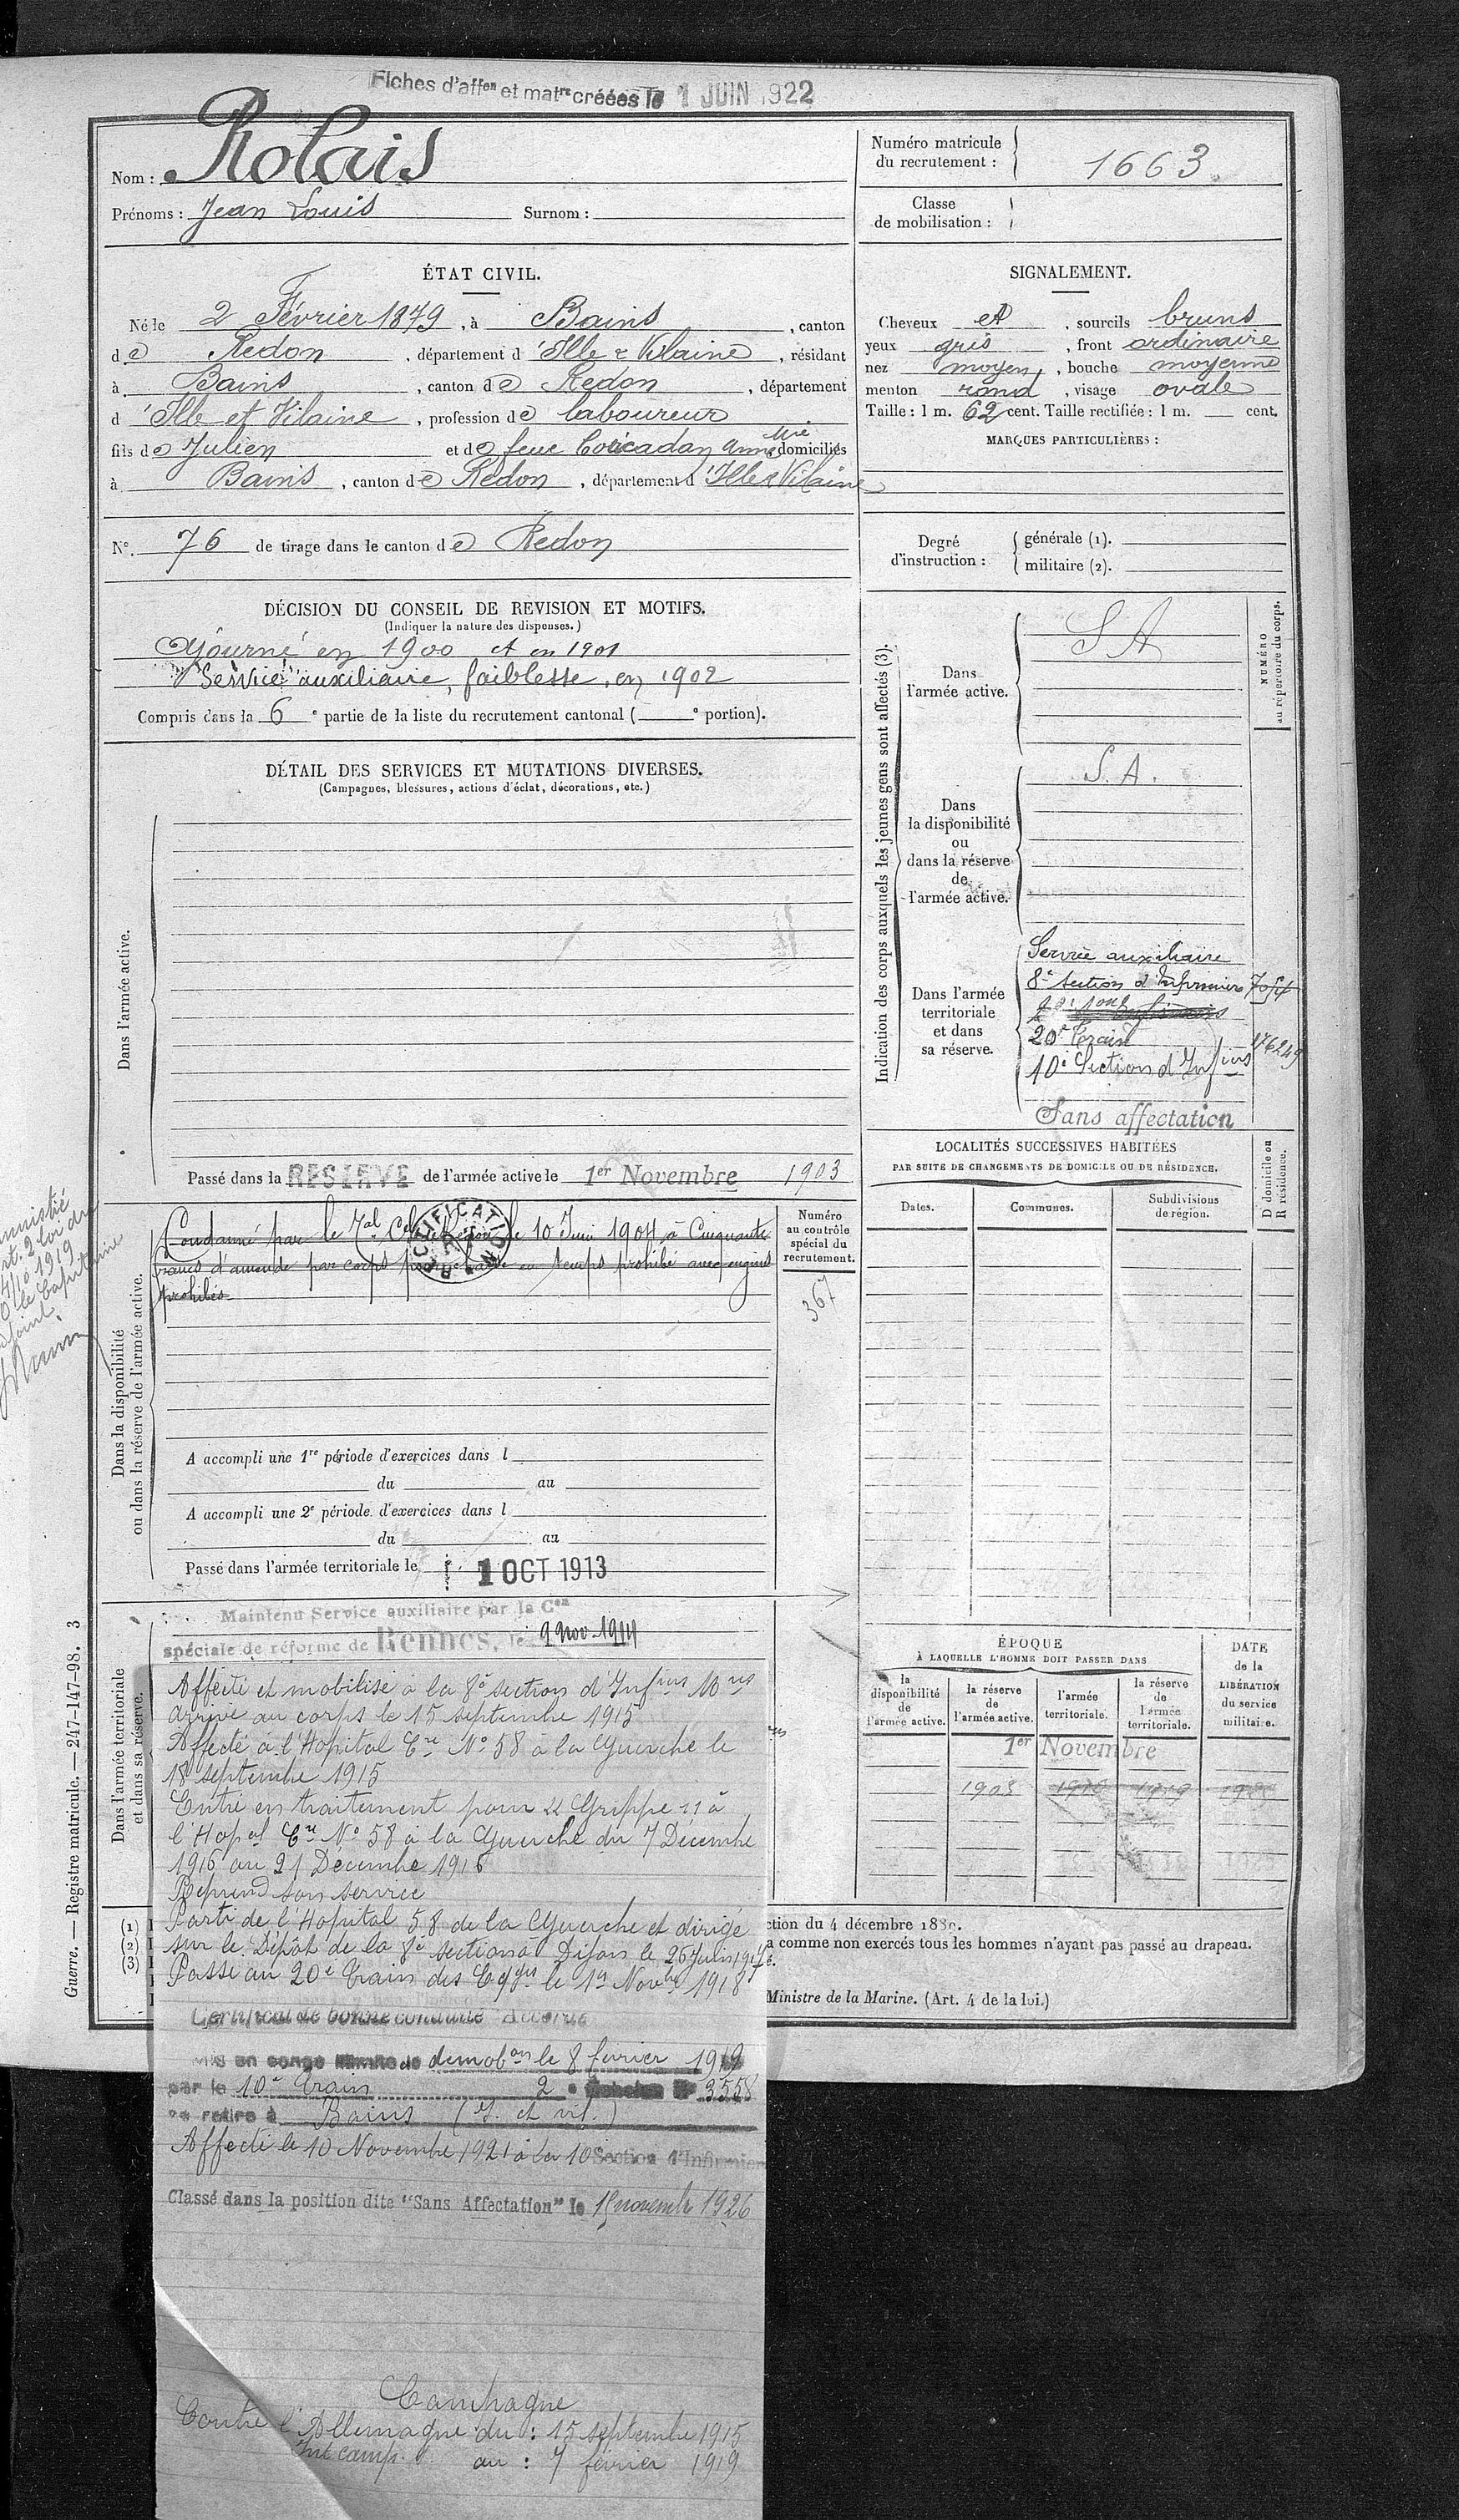 Fiches d'affon et matre créées le 1 JUIN 1922
Nom : Rolais
Prénoms : Jean Louis Surnom :
Numéro matricule du recrutement : 1663
Classe de mobilisation :
ÉTAT CIVIL.
Né le 2 Février 1879, à Bains, canton
de Redon, département d'Ille & Vilaine, résidant
à Bains, canton de Redon, département
d'Ille et Vilaine, profession de laboureur
fils de Julien et de feue Anne Mie domiciliés
à Bains, canton de Redon, département d'Ille & Vilaine
N° 76 de tirage dans le canton de Redon
SIGNALEMENT.
Cheveux et, sourcils bruns
yeux gris, front ordinaire
nez moyen, bouche moyenne
menton rond, visage ovale
Taille : 1 m. 62 cent. Taille rectifiée : 1 m. — cent.
MARQUES PARTICULIÈRES :
Degré d'instruction : générale (1).
militaire (2).
DÉCISION DU CONSEIL DE REVISION ET MOTIFS.
(Indiquer la nature des dispenses.)
Ajourné en 1900 et en 1901
Service auxiliaire, faiblesse, en 1902
Compris dans la 6e partie de la liste du recrutement cantonal ( e portion).
DÉTAIL DES SERVICES ET MUTATIONS DIVERSES.
(Campagnes, blessures, actions d'éclat, décorations, etc.)
Dans l'armée active.
Passé dans la RESERVE de l'armée active le 1er Novembre 1903
Indication des corps auxquels les jeunes gens sont affectés (3).
NUMÉRO au répertoire du corps.
Dans l'armée active.
S A
Dans la disponibilité ou dans la réserve de l'armée active.
S. A.
Dans l'armée territoriale et dans sa réserve.
Service auxiliaire
8e Section d'Infirmiers
20e Train
10e Section d'Infiers
Sans affectation
LOCALITÉS SUCCESSIVES HABITÉES
PAR SUITE DE CHANGEMENTS DE DOMICILE OU DE RÉSIDENCE.
D domicile ou R résidence.
Dates. Communes. Subdivisions de région.
Dans la disponibilité ou dans la réserve de l'armée active.
Condamné par le Tal Cel de Redon le 10 Juin 1904 à Cinquante
francs d'amende par corps pour chasse en temps prohibé avec engins
prohibés
RECTIFICATION
Numéro au contrôle spécial du recrutement.
367
A accompli une 1re période d'exercices dans l
du au
A accompli une 2e période d'exercices dans l
du au
Passé dans l'armée territoriale le 1 OCT 1913
Dans l'armée territoriale et dans sa réserve.
Maintenu Service auxiliaire par la Con
spéciale de réforme de Rennes, le 9 Nov. 1914
Affecté et mobilisé à la 8e section d'Infiers Mres
arrivé au corps le 15 septembre 1915
Affecté à l'Hopital Cre N° 58 à la Guerche le
18 septembre 1915
Entré en traitement pour "Grippe" à
l'Hopal Cre N° 58 à la Guerche du 7 Décembre
1916 au 21 Décembre 1916
Reprend son service
Parti de l'Hopital 58 de la Guerche et dirigé
sur le Dépôt de la 8e section à Dijon le 26 Juin 1917
Passé au 20e Train des Eqges le 19 Novbre 1918
Certificat de bonne conduite Accordé
Mis en congé illimité de demobon le 8 février 1919
par le 10e Train 2 e échelon N° 3558
se retire à Bains (I. et Vil.)
Affecté le 10 Novembre 1921 à la 10 Section d'Infirmiers
Classé dans la position dite "Sans Affectation" le 15 novembre 1926
Campagne
Contre l'Allemagne du : 15 septembre 1915
au : 7 février 1919
ÉPOQUE
À LAQUELLE L'HOMME DOIT PASSER DANS
la disponibilité de l'armée active.
la réserve de l'armée active.
l'armée territoriale.
la réserve de l'armée territoriale.
DATE de la LIBÉRATION du service militaire.
1er Novembre
1903
ction du 4 décembre 1889.
a comme non exercés tous les hommes n'ayant pas passé au drapeau.
Ministre de la Marine. (Art. 4 de la loi.)
(1)
(2)
(3)
Guerre. — Registre matricule. — 247-147-98. 3